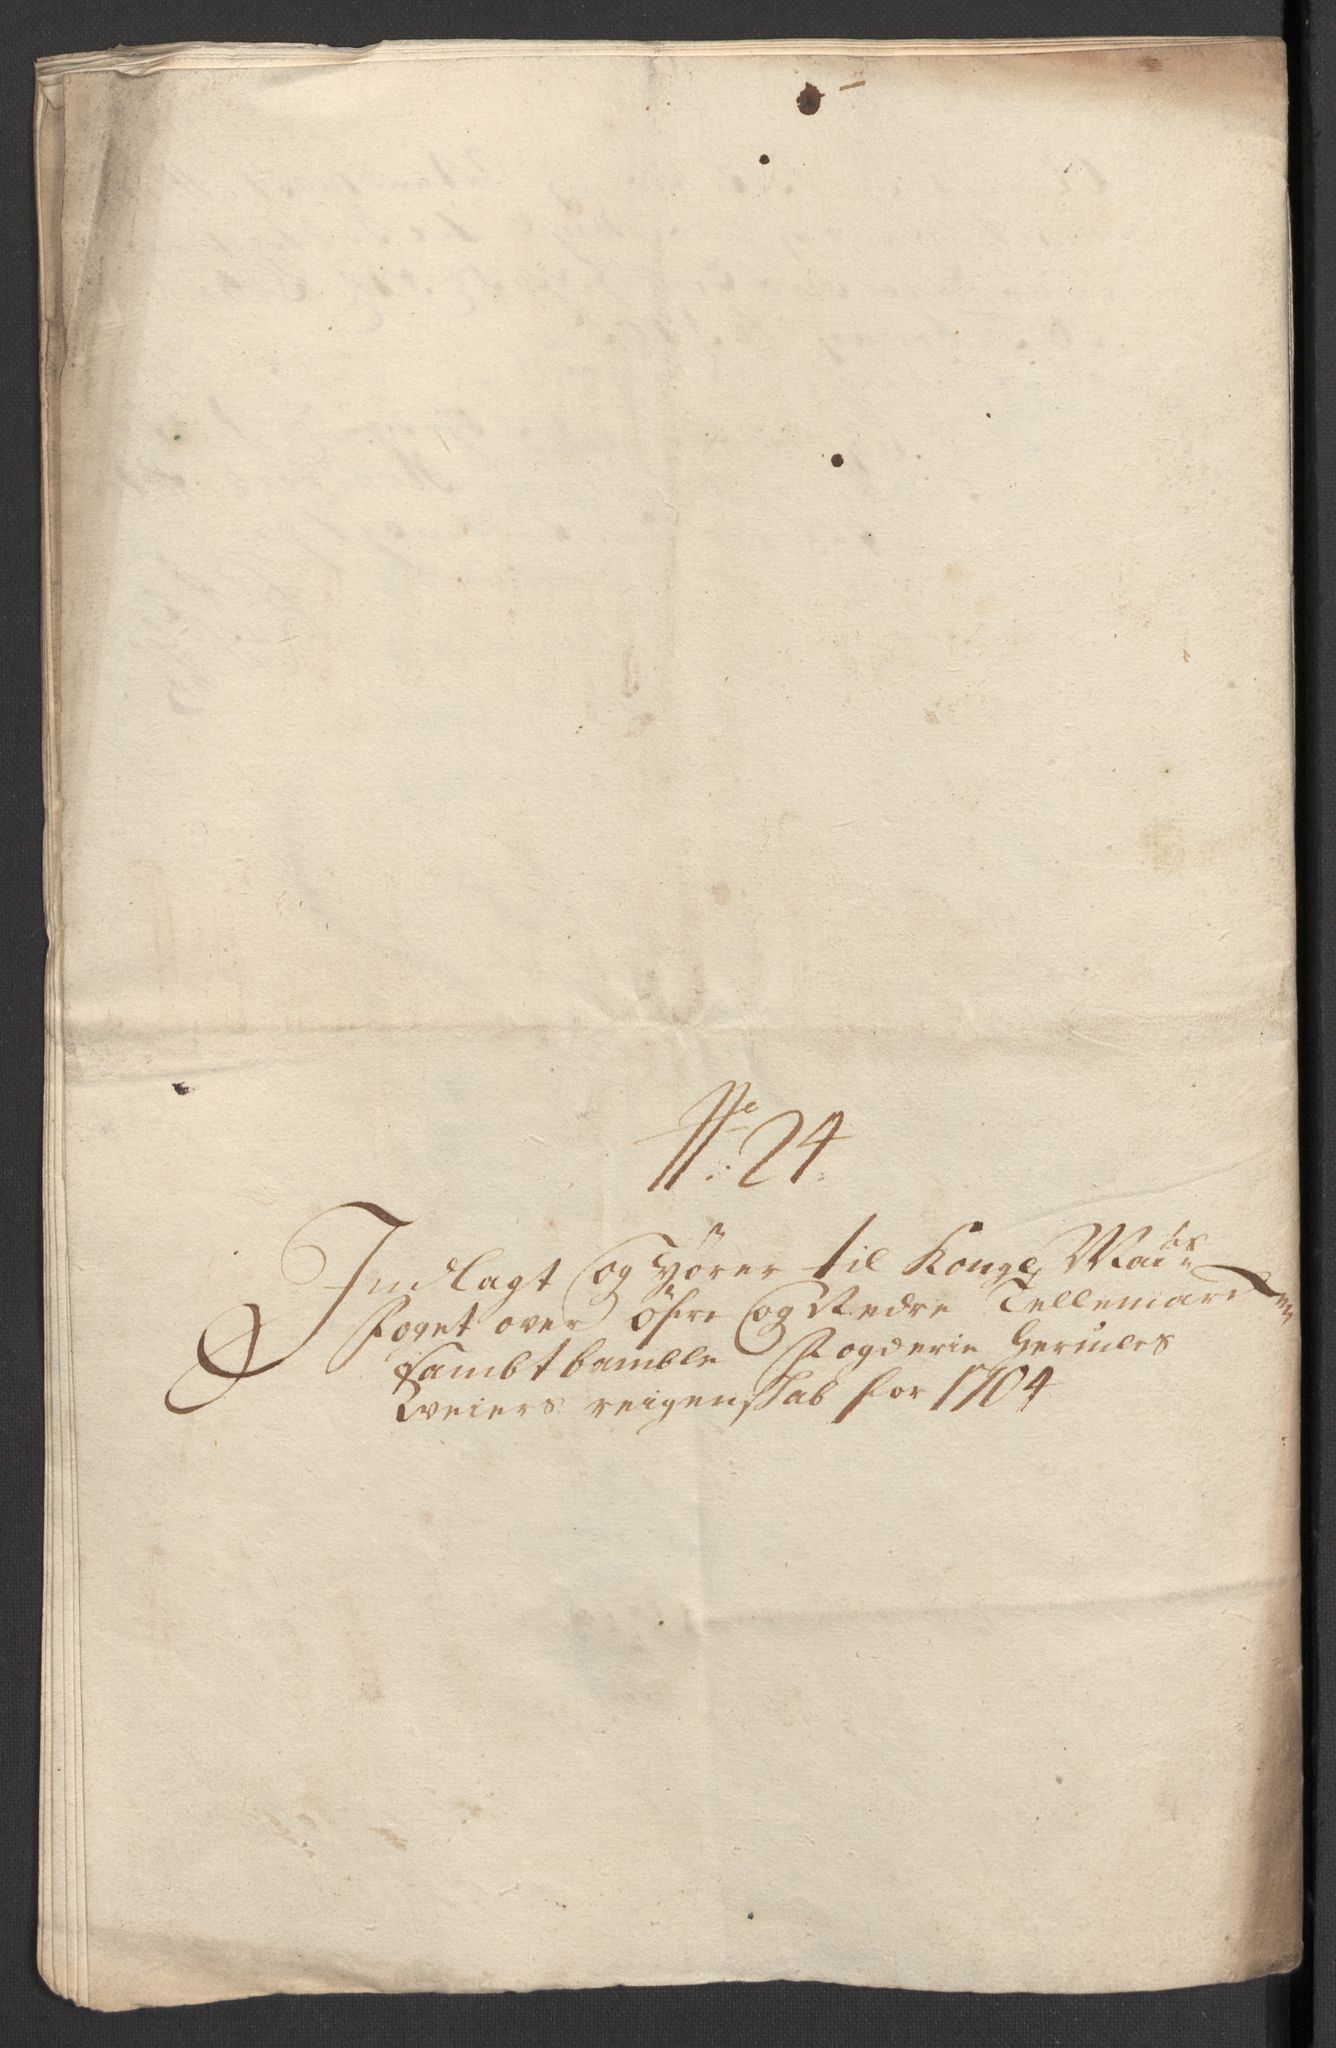 No: 24.
Indlagt og Hörer til Kongl. Mai:ts
Foget over Öfre og Nedre Tellemarcken
sambt bamble Fogderie Herr
Weiers reigenskab for 1704